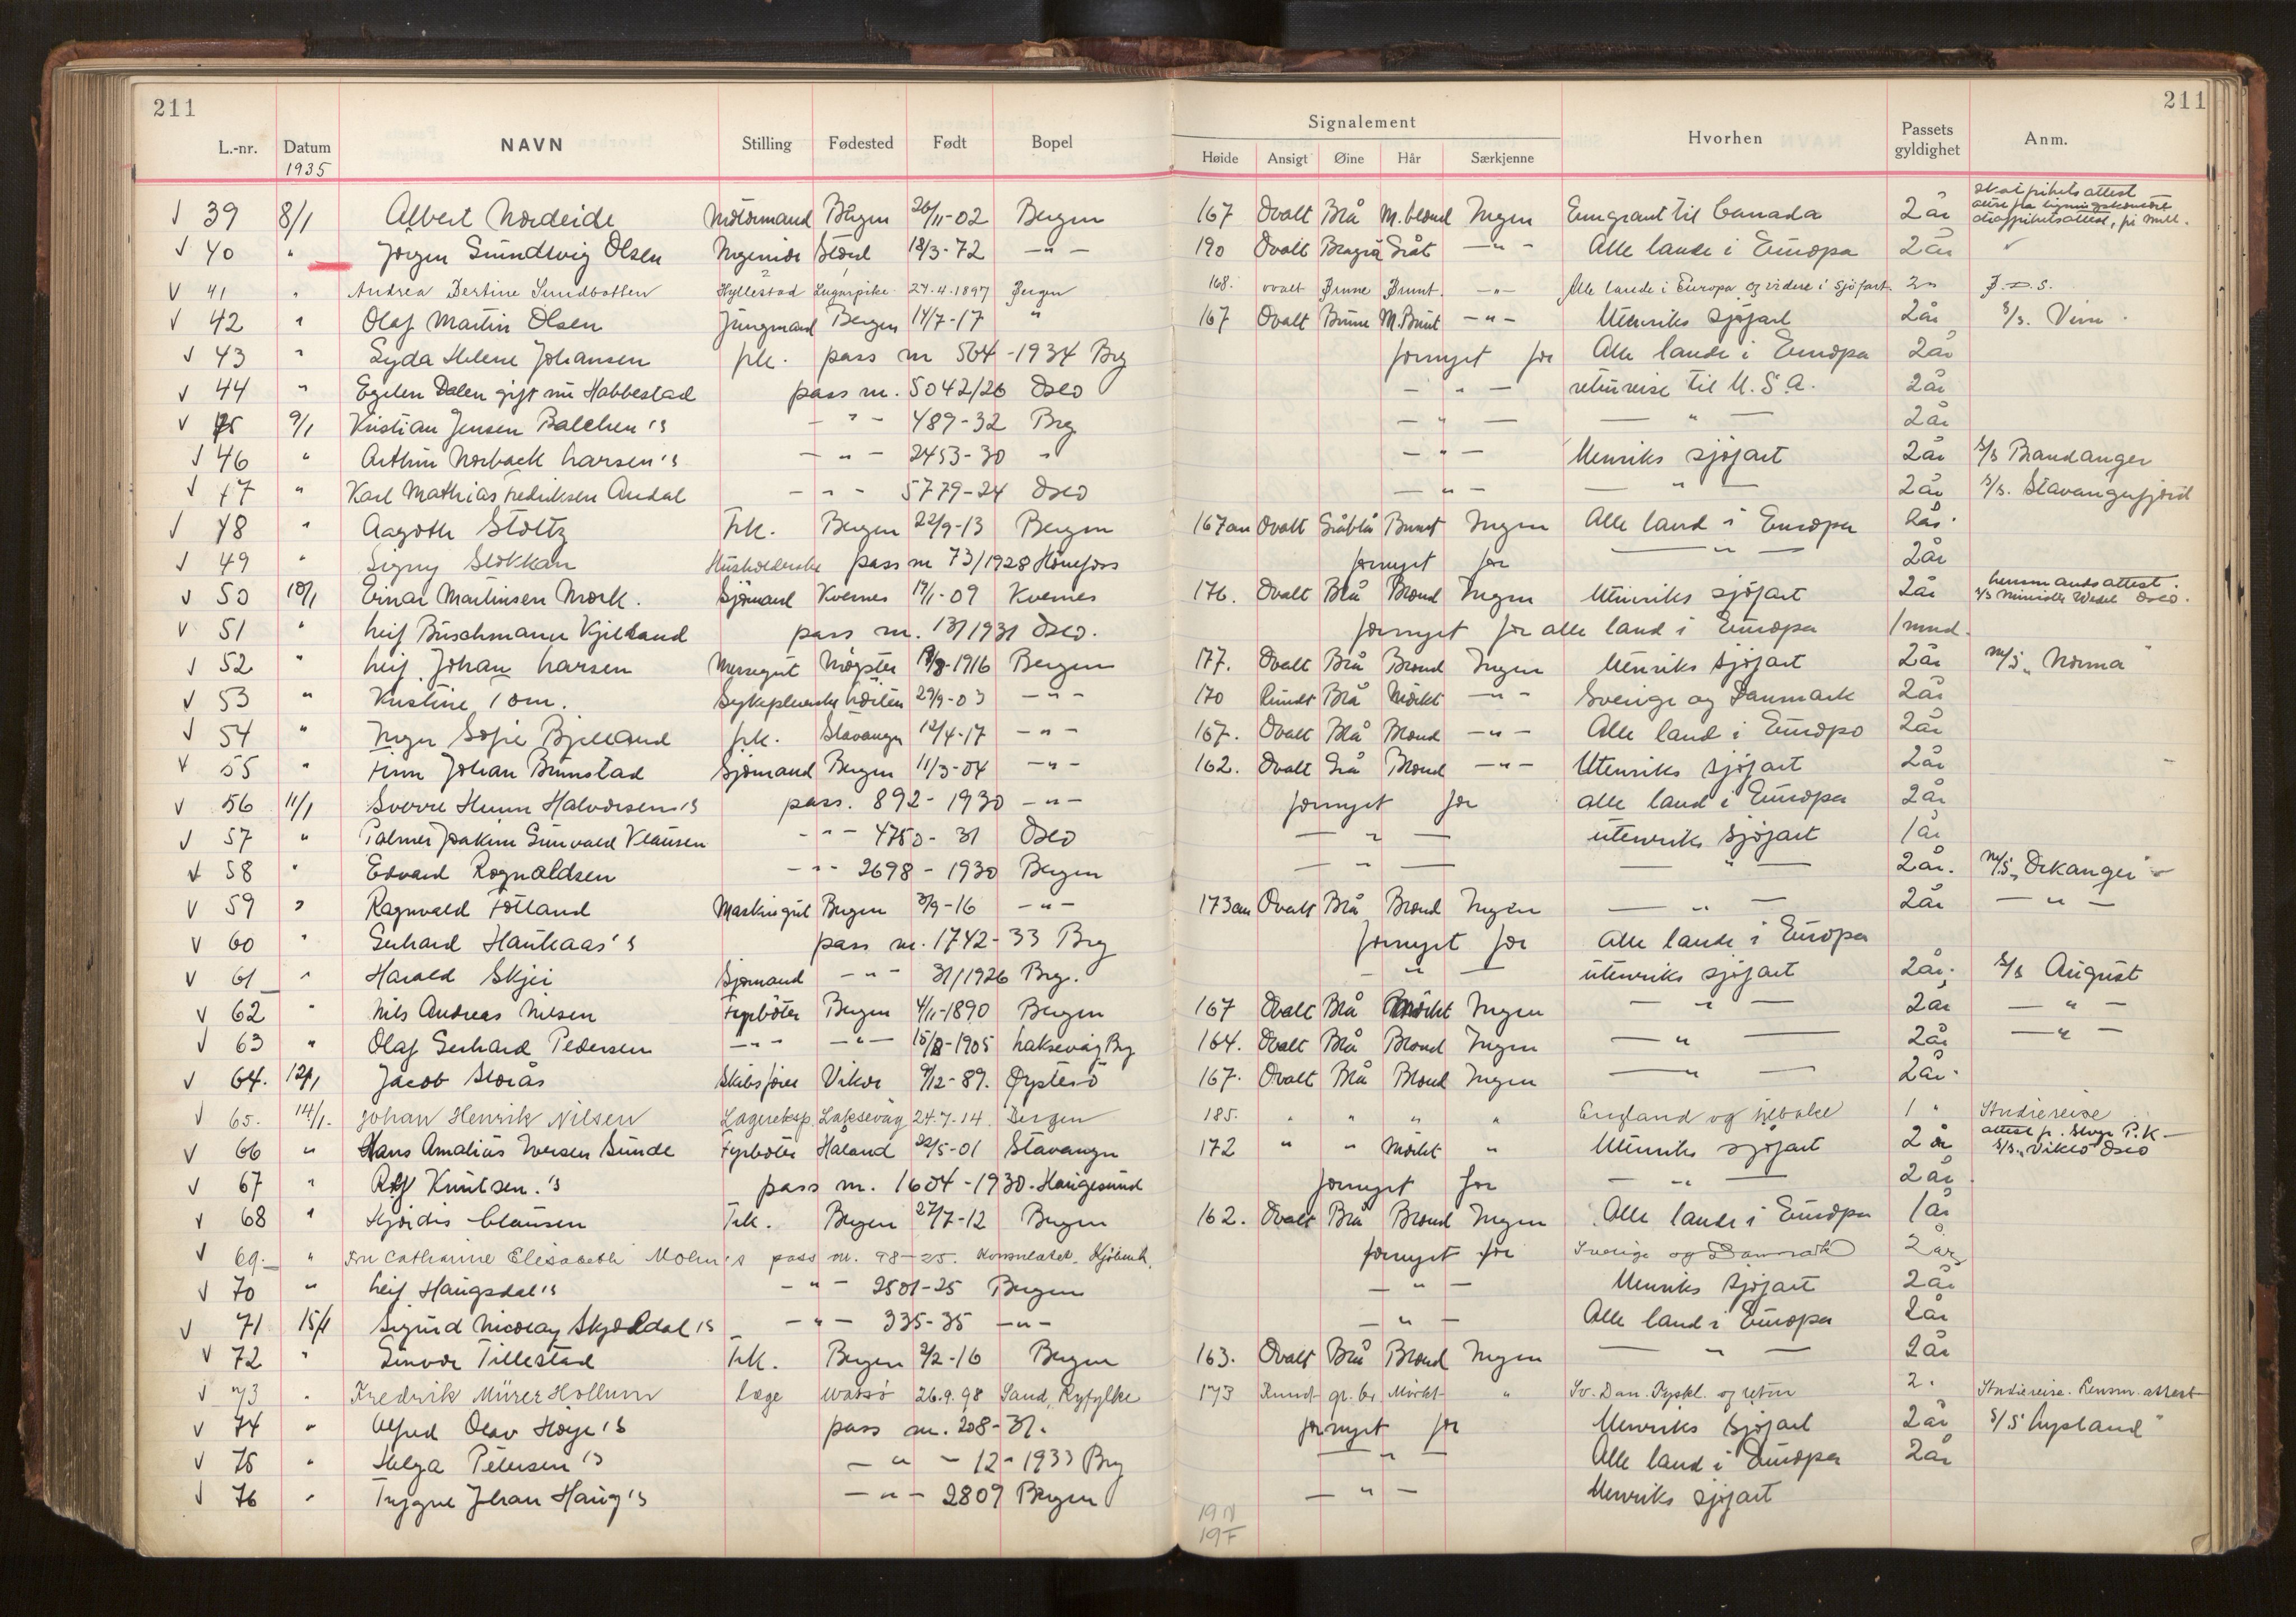 211
211
Signalement
L.-nr. Datum NAVN Stilling Fødested Født Bopel Høide Ansigt Øine Hår Særkjenne Hvorhen Passets gyldighet Anm.
1935
39 8/1 Albert Nordeide Motormand Bergen 26/11-02 Bergen 167 Ovalt Blå M. blond Ingen Emigrant til Canada 2 år
40 " Jørgen Grundtvig Olsen Ingeniør Stord 18/3-72 -"- 190 Ovalt Blågrå Gråt -"- Alle lande i Europa 2 år
41 " Andrea Bertine Sundbotten Hyllestad 27.4.1897 Bergen 168. ovalt Brune Brunt. -"- Alle lande i Europa og videre i sjøfart 2 " B.D.S.
42 " Olaf Martin Olsen Jungmand Bergen 14/7-17 " 167 Ovalt Brune M. Brunt -"- Utenriks sjøfart 2 år
43 " Lyda Helene Johansen frk. pass nr 564-1934 Brg fornyet for Alle lande i Europa 2 år
44 " Dalen gift nu Habbestad pass nr. 5042/26 Oslo -"- returreise til U.S.A. 2 år
45 9/1 Kristian Jensen Balchen's -"- 489-32 Brg -"- -"- 2 år
46 " Arthur Norback Larsen's -"- 2453-30 " -"- Utenriks sjøfart 2 år s/s Brandanger
47 " Karl Mathias Fredriksen Andal -"- 5779-24 Oslo -"- -"- 2 år s/s. Stavangerfjord
48 " Aagoth Stoltz Frk. Bergen 22/9-13 Bergen 167 cm Ovalt Gråblå Brunt Ingen Alle land i Europa 2 år.
49 " Signy Stokkan Husholderske pass nr 73/1928 Hönefoss fornyet for -"- 2 år
50 10/1 Einar Martinsen Mork. Sjömand Kvernes 17/1-09 Kvernes 176. Ovalt Blå Blond Ingen Utenriks sjøfart 2 år lensmandsattest. s/s Minister Wedel Oslo.
51 " Leif Buschmann Kjelland pass nr. 13/1931 Oslo. fornyet for alle land i Europa 1 mnd.
52 " Leif Johan Larsen Messegut Møgster 1916 Bergen 177. Ovalt Blå Blond Ingen Utenriks sjøfart 2 år m/s „Norma"
53 " Kristine Tom. Sykepleierske 29/9-03 -"- 170 Rundt Blå Mörkt -"- Sverige og Danmark 2 år
54 " Inger Sofie Bjelland frk. Stavanger 12/4-17 -"- 167. Ovalt Blå Blond -"- Alle land i Europa 2 år
55 " Finn Johan Brunstad Sjömand Bergen 11/3-04 -"- 162. Ovalt Grå Blond -"- Utenriks sjøfart 2 år
56 11/1 Sverre Halvorsen's pass. 892-1930 -"- fornyet for alle land i Europa 2 år
57 " Palmer Joakim Gunvald Klausen -"- 4750-31 Oslo -"- utenriks sjøfart 1 år
58 " Edvard Rognaldsen -"- 2698-1930 Bergen -"- -"- 2 år. m/s „Orkanger"
59 " Ragnvald Totland Maskingut Bergen 3/9-16 -"- 173 cm Ovalt Blå Blond Ingen -"- 2 år -"-
60 " Gerhard Haukaas's pass nr. 1742-33 Brg fornyet for Alle lande i Europa
61 " Harald Skjei Sjømand -"- 31/1926 Brg. -"- utenriks sjøfart 2 år. s/s August
62 " Nils Andreas Nilsen Fyrböter Bergen 4/11-1890 Bergen 167 Ovalt Blå Mörkt Ingen -"- 2 år -"-
63 " Olaf Gerhard Pedersen -"- -"- 15/8-1905 Laksevåg Brg 164. Ovalt Blå Blond Ingen -"- 2 år -"-
64. 12/1 Jacob Storås Skibsfører Vikør 9/12-89. Øystesö 167. Ovalt Blå Blond Ingen -"- 2 år.
65. 14/1. Johan Henrik Nilsen Lagereksp. Laksevåg 24.7.14. Bergen 185. " " " " England og tilbake 1 " Studiereise
66 " Hans Amalius Iversen Sunde Fyrböter Håland 22/5-01 Stavanger 172 " " Mörkt " Utenriks sjøfart 2 år s/s. „Vikeö Oslo
67 " Rolf Knutsen.'s pass nr. 1604-1930. Haugesund fornyet for -"- 2 år
68 " Hjørdis Clausen Frk. Bergen 27/7-12 Bergen 162. Ovalt Blå Blond Ingen Alle lande i Europa 1 år
69. " Fru Cathrine Elisabeth Mohn's pass nr. 98-25. Konsulatet. Kjøbenh. fornyet for Sverige og Danmark 2 år
70 " Leif Haugsdal's -"- 2501-25 Bergen -"- Utenriks sjøfart 2 år
71 15/1 Sigurd Nicolay Skjoldal's -"- 335-35 -"- -"- Alle land i Europa 2 år
72 " Gunvor Tillestad Frk. Bergen 2/2-16 Bergen 163. Ovalt Blå Blond Ingen -"- 2 år
73 " Fredrik Mürer Hollum læge 26.9.98 Sand, Ryfylke 173 Rundt gr. bl. Mörkt " Sv. Dan. Tyskl. og retur 2. Studiereise. Lensm. attest
74 " Alfred Olav Høye's pass nr. 208-31. fornyet for Utenriks sjøfart 2 år s/s Lysland"
75 " Helga Petersen's -"- 12-1933 Brg -"- Alle land i Europa 2 år
76 " Trygve Johan Haug's -"- 2809 Bergen -"- Utenriks sjøfart
19 N
19 F